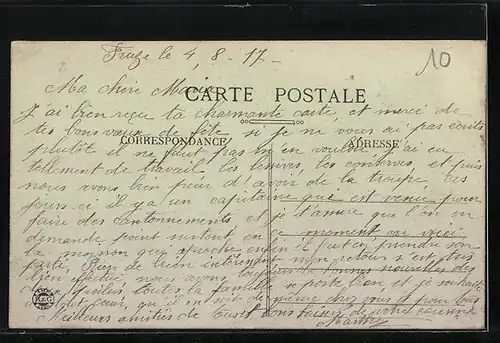 Fruze le 4, 8 - 17 -
10
Ma chère Marie
CARTE POSTALE
J'ai bien reçu ta charmante carte, et merci de
tes bons vœux de fête si je ne vous ai pas écrits
CORRESPONDANCE
ADRESSE
plutôt il ne faut pas m'en vouloir j'ai eu
tellement de travail, les lessives, les conserves, et puis
nous avons bien peur d'avoir de la troupe, ces
jours-ci il y a un capitaine qui est venu pour
faire des cantonnements et je t'assure que l'on en
demande point surtout en ce moment car voici
la moisson qui approche enfin il faut en prendre son
parti. Rien de bien intéressant mon retour s'est très
bien effectué nous avons toujours de bonnes nouvelles des
poilus toute la famille se porte bien et je souhaite
qu'il en soit de même chez vous pour tous
R&G
Meilleures amitiés de tous bons baisers de votre cousine
Marthe